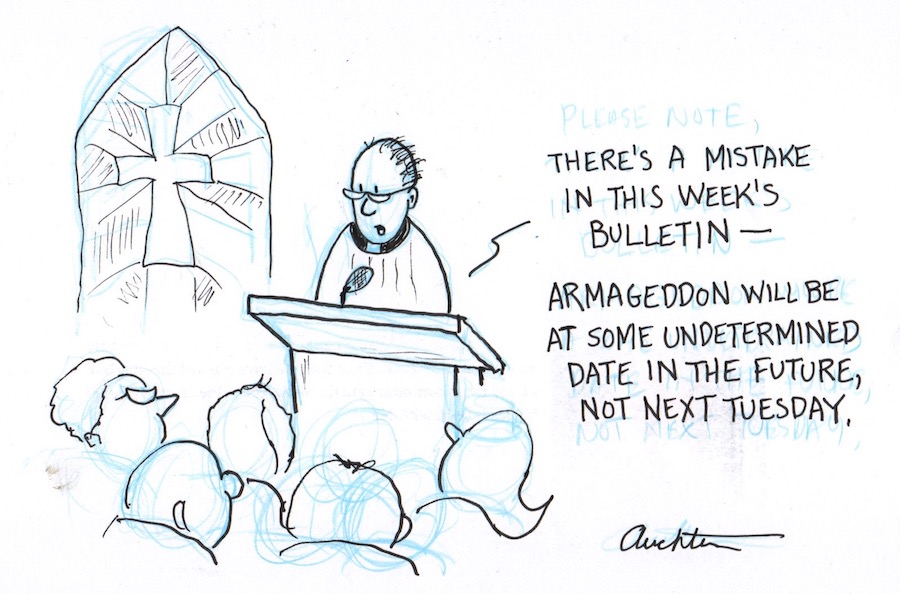 PLEASE NOTE,
THERE'S A MISTAKE
IN THIS WEEK'S
BULLETIN —
ARMAGEDDON WILL BE
AT SOME UNDETERMINED
DATE IN THE FUTURE,
NOT NEXT TUESDAY.
Auchter